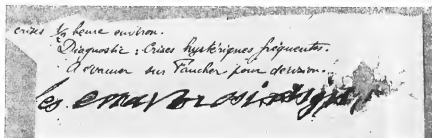 crises ½ heure environ.
Diagnostic : Crises hystériques fréquentes.
A évacuer sur Faucher pour décision.
les